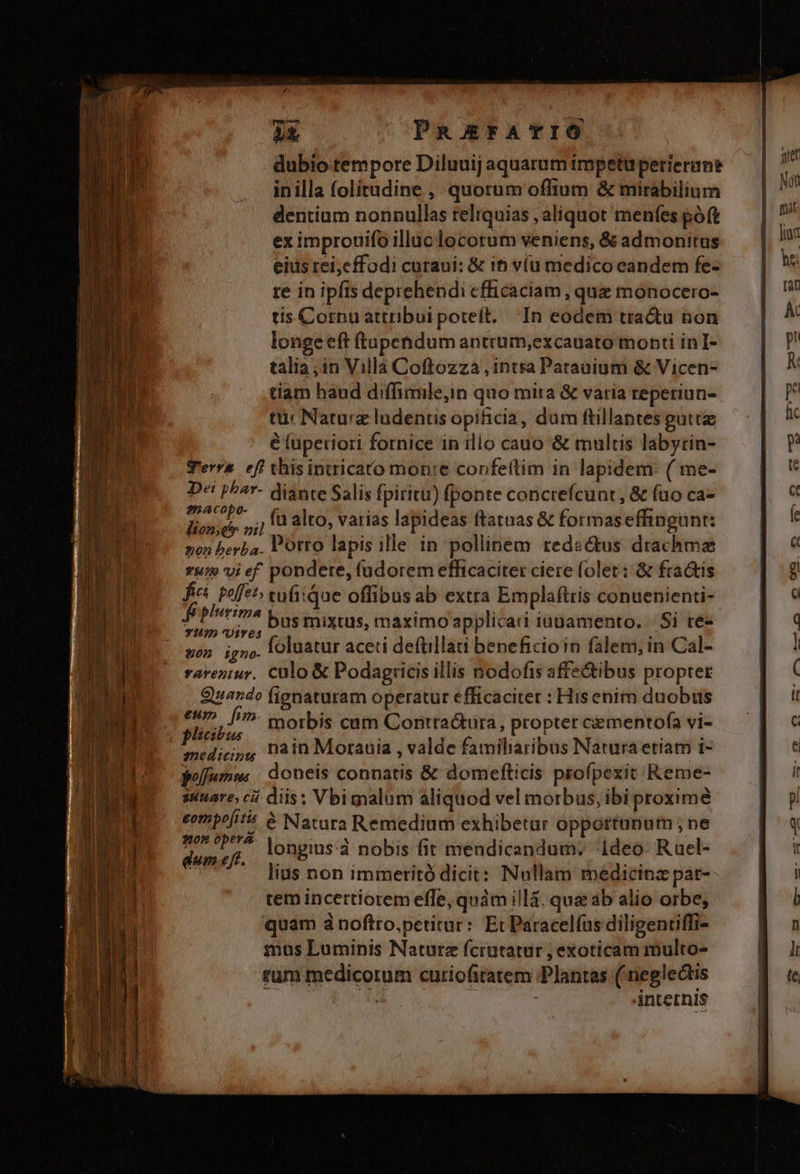 12 PRÆFATIO
dubio tempore Diluuij aquarum impetu perierunt
in illa ſolitudine, quorum oſſium & mirabilium
dentium nonnullas reliquias, aliquot menſes pòſt
ex improuiſo illuc locorum veniens, & admonitus
eius rei, effodi curaui: & in vſu medico eandem fe-
re in ipſis deprehendi efficaciam, quæ monocero-
tis Cornu attribui poteſt. In eodem tractu non
longe eſt ſtupendum antrum, excauato monti in I-
talia, in Villa Coſtozza, intra Patauium & Vicen-
tiam haud diſſimile, in quo mira & varia reperiun-
tur Naturæ ludentis opificia, dum ſtillantes guttæ
è ſuperiori fornice in illo cauo & multis labyrin-
this intricato monte confeſtim in lapidem (me-
diante Salis ſpiritu) ſponte concreſcunt, & ſuo ca-
ſu alto, varias lapideas ſtatuas & formas effingunt:
Porro lapis ille in pollinem redactus drachmæ
pondere, ſudorem efficaciter ciere ſolet: & fractis
tuſisque oſſibus ab extra Emplaſtris conuenienti-
bus mixtus, maximo applicari iuuamento. Si re-
ſoluatur aceti deſtillati beneficio in ſalem, in Cal-
culo & Podagricis illis nodoſis affectibus propter
ſignaturam operatur efficaciter: His enim duobus
morbis cum Contractura, propter cæmentoſa vi-
na in Morauia, valde familiaribus Natura etiam i-
doneis connatis & domeſticis proſpexit Reme-
diis: Vbi malum aliquod vel morbus, ibi proximè
è Natura Remedium exhibetur opportunum, ne
longius à nobis ſit mendicandum. Ideo Ruel-
lius non immeritò dicit: Nullam medicinæ par-
tem incertiorem eſſe, quàm illá quæ ab alio orbe,
quam à noſtro petitur: Et Paracelſus diligentiſſi-
mus Luminis Naturæ ſcrutatur, exoticam multo-
rum medicorum curioſitatem Plantas (neglectis
internis
Terra eſt
Dei phar-
macopo-
lion, & nil
non herba-
rum vi eſ
fici poſſet,
ſi plurima-
rum vires
non igno-
rarentur.
Quando
cum ſim-
plicibus
medicinis
poſſumus
iuuare, cũ
compoſitis
non operã-
dum eſt.